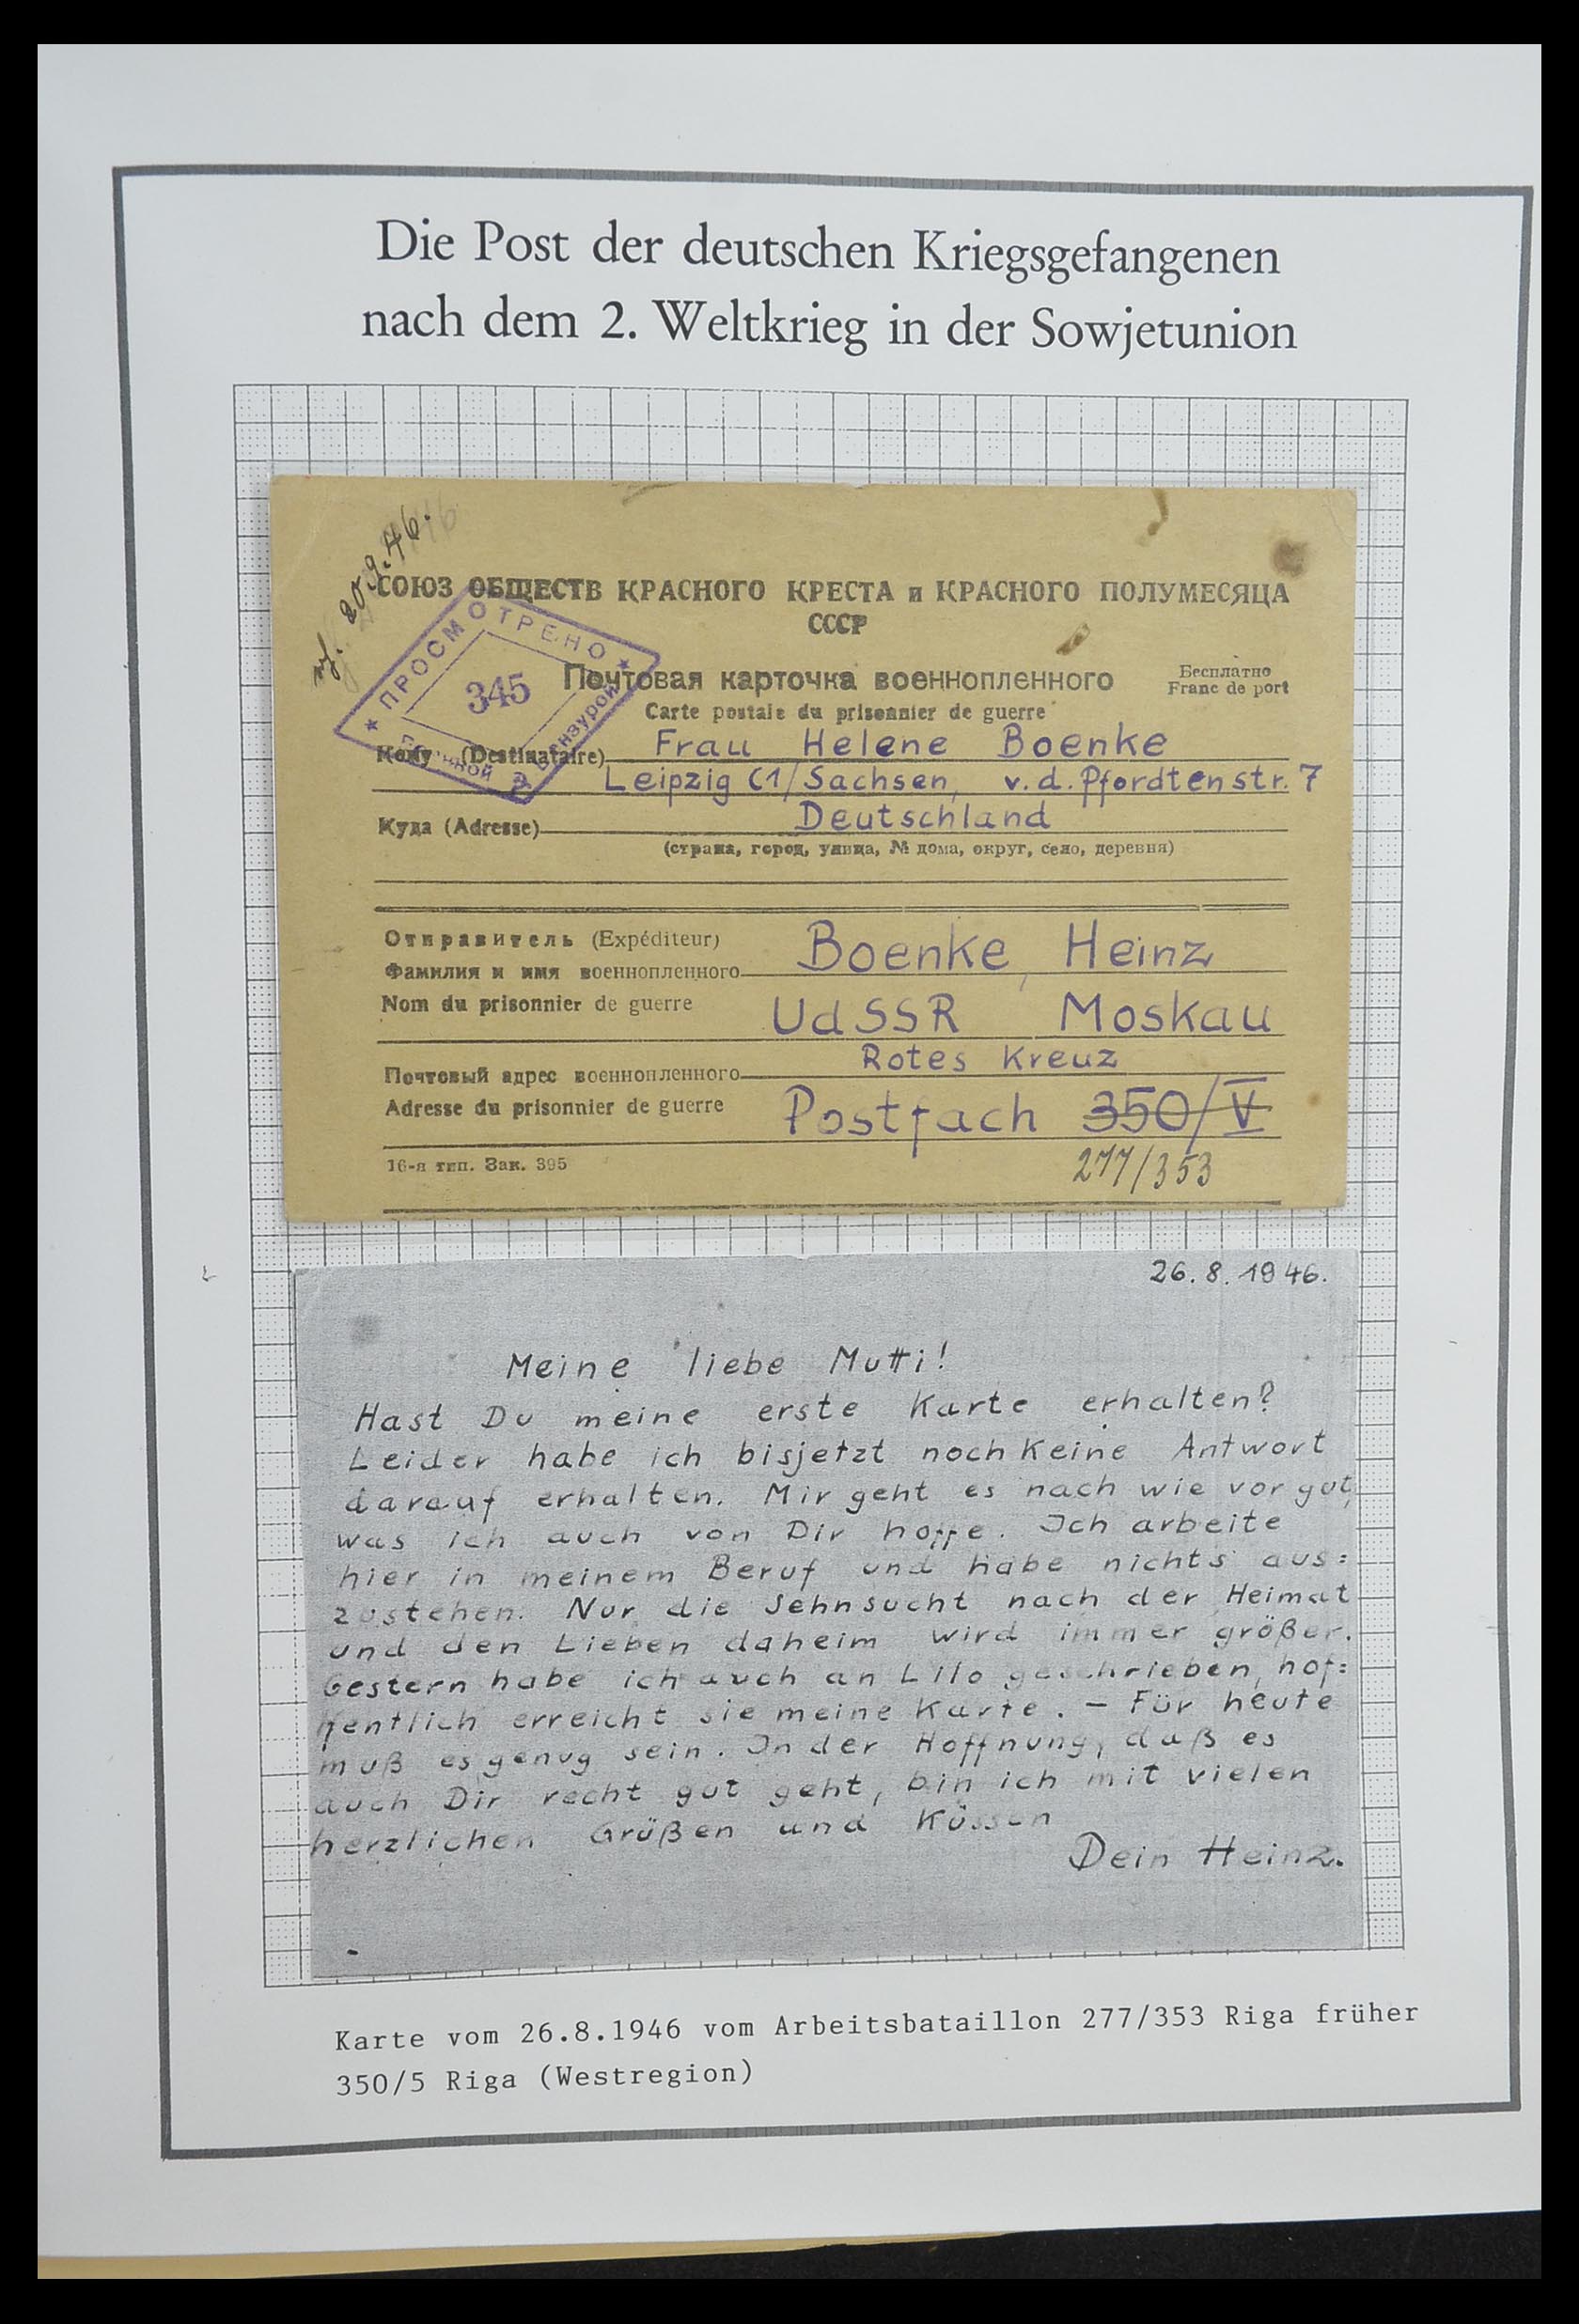 Die Post der deutschen Kriegsgefangenen
nach dem 2. Weltkrieg in der Sowjetunion
20.9.46.
СОЮЗ ОБЩЕСТВ КРАСНОГО КРЕСТА и КРАСНОГО ПОЛУМЕСЯЦА
СССР
★ ПРОСМОТРЕНО ★
345
Почтовая карточка военнопленного
Бесплатно
Franc de port
Carte postale du prisonnier de guerre
Кому (Destinataire) Frau Helene Boenke
Leipzig C1/Sachsen, v.d.Pfordtenstr. 7
Куда (Adresse) Deutschland
(страна, город, улица, № дома, округ, село, деревня)
Отправитель (Expéditeur)
Фамилия и имя военнопленного Boenke, Heinz
Nom du prisonnier de guerre
UdSSR Moskau
Rotes Kreuz
Почтовый адрес военнопленного
Adresse du prisonnier de guerre
Postfach 350/V
16-я тип. Зак. 395
277/353
26.8.1946.
Meine liebe Mutti!
Hast Du meine erste Karte erhalten?
Leider habe ich bisjetzt noch keine Antwort
darauf erhalten. Mir geht es nach wie vor gut,
was ich auch von Dir hoffe. Ich arbeite
hier in meinem Beruf und habe nichts aus=
zustehen. Nur die Sehnsucht nach der Heimat
und den Lieben daheim wird immer größer.
Gestern habe ich auch an Lilo geschrieben, hof=
fentlich erreicht sie meine Karte. – Für heute
muß es genug sein. In der Hoffnung, daß es
auch Dir recht gut geht, bin ich mit vielen
herzlichen Grüßen und Küssen
Dein Heinz.
Karte vom 26.8.1946 vom Arbeitsbataillon 277/353 Riga früher
350/5 Riga (Westregion)